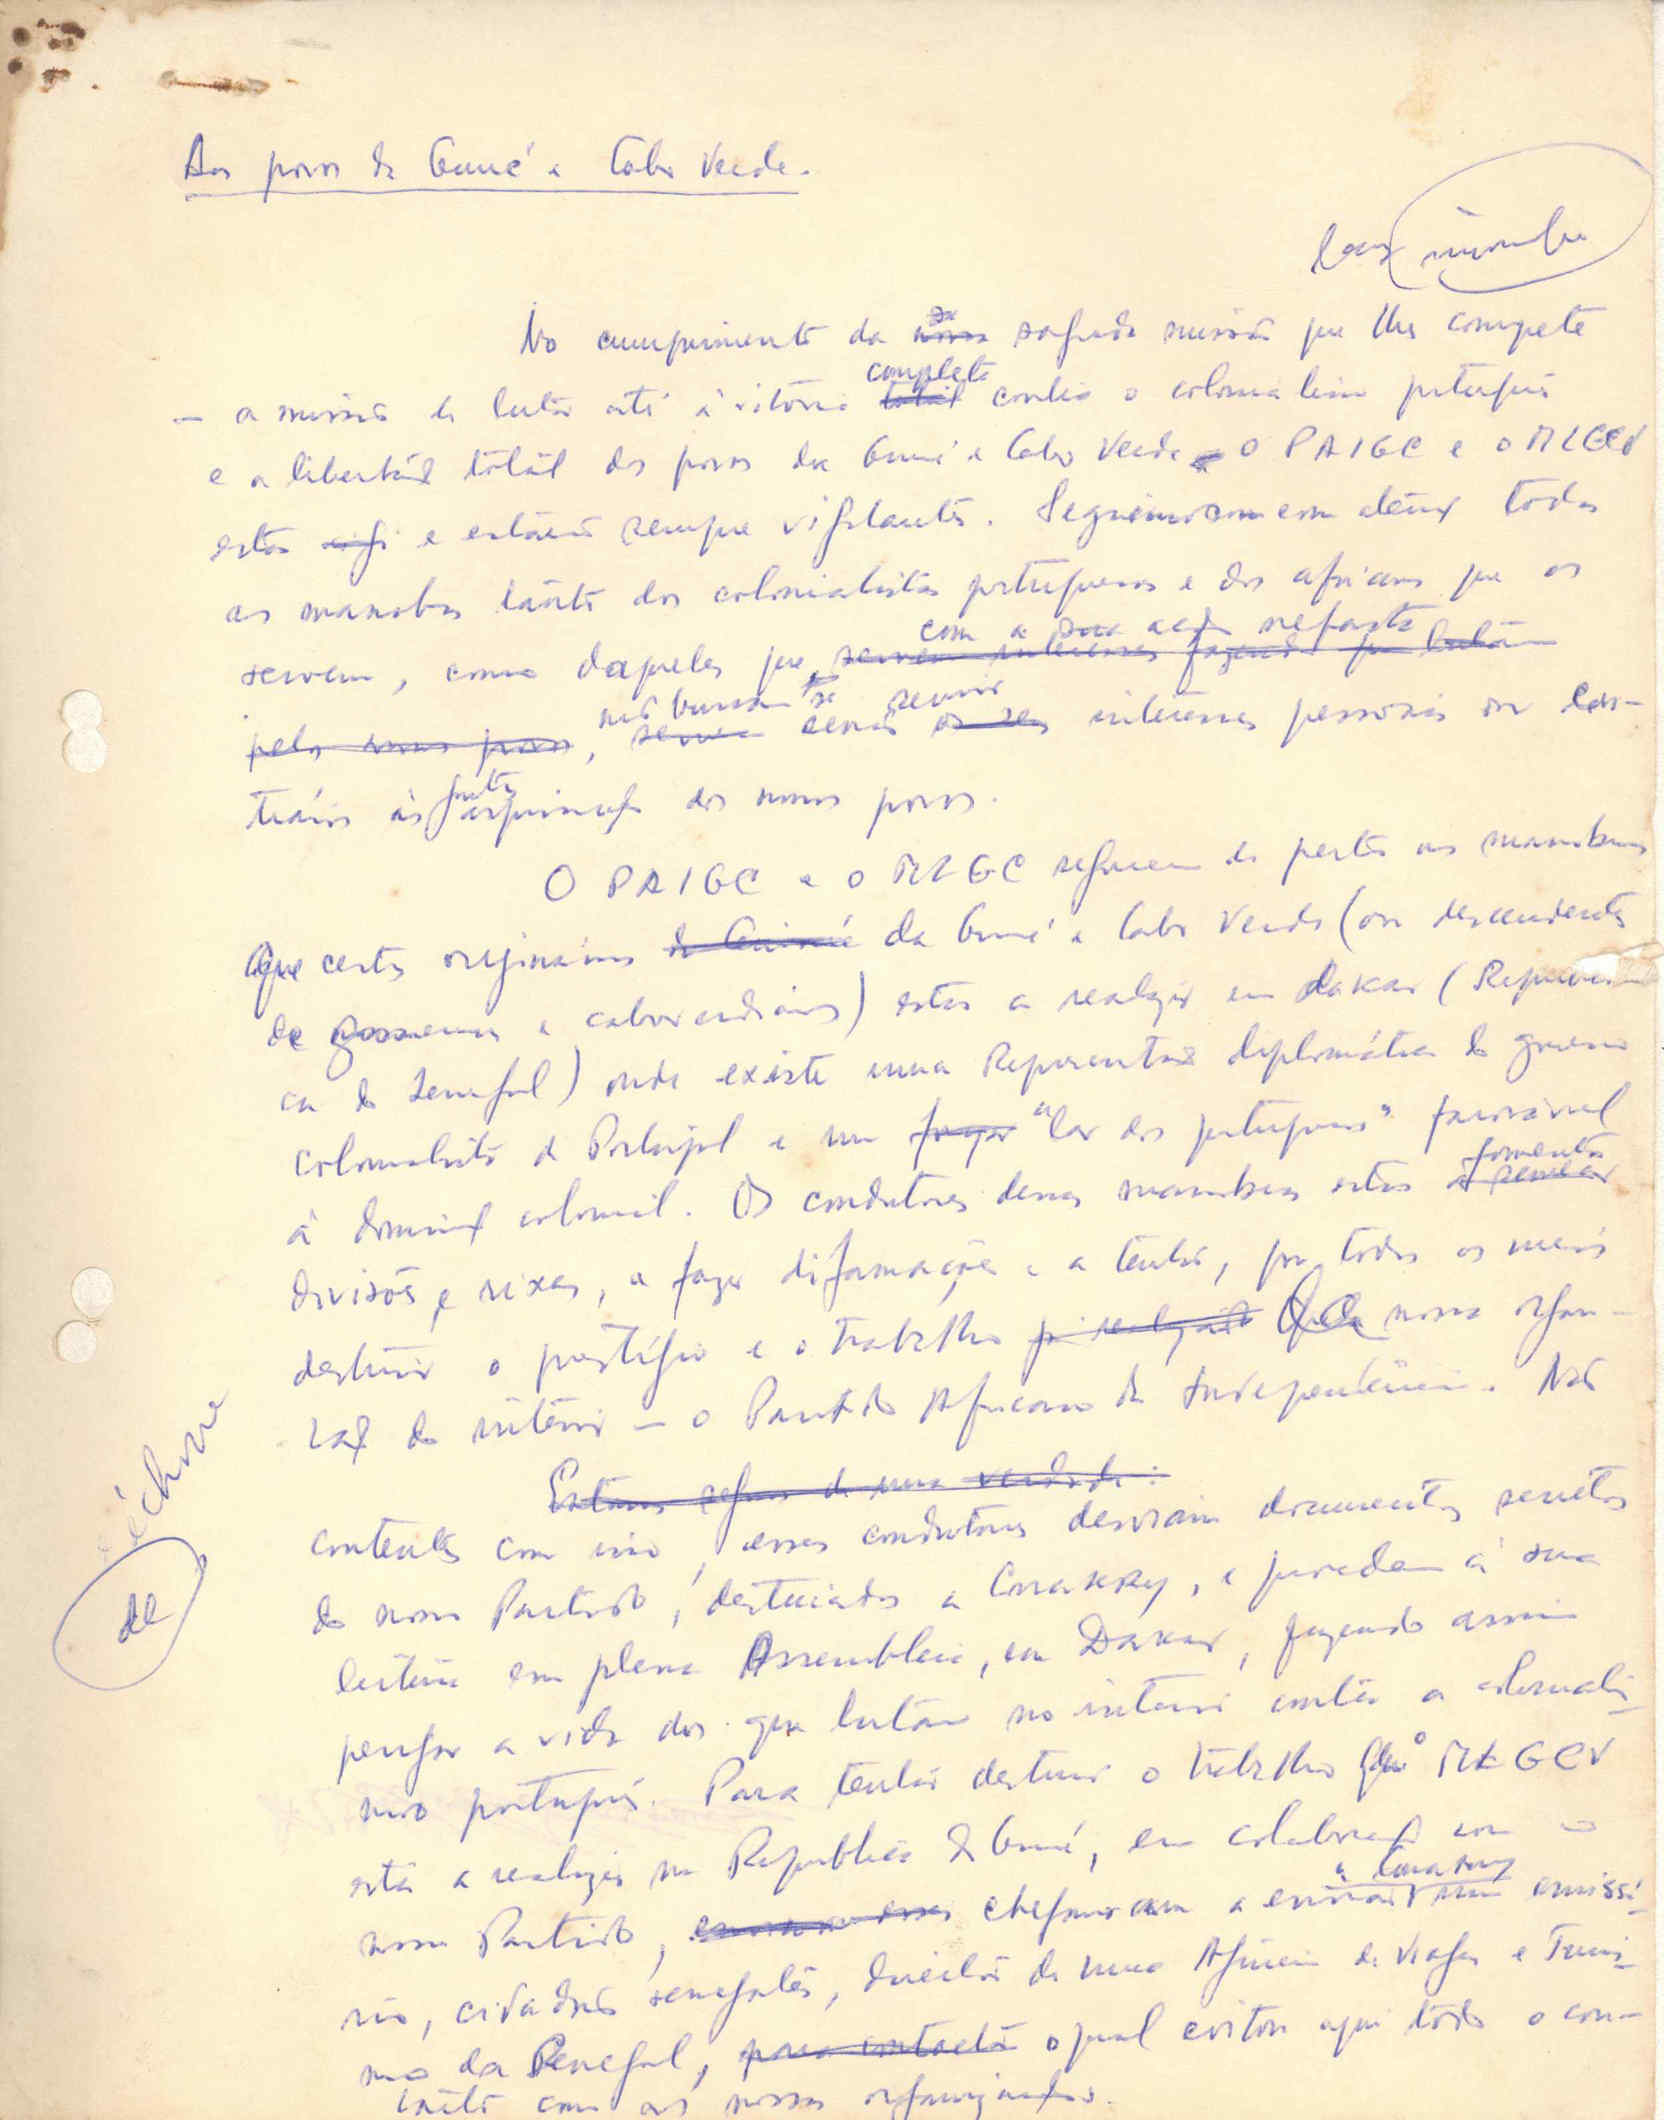 Aos povos da Guiné e Cabo Verde.
No cumprimento da sagrada missão que lhes compete
completa
— a missão de lutar até à vitória total contra o colonialismo português
e a libertação total dos povos da Guiné e Cabo Verde — O PAIGC e o MLGCV
estão e estarão sempre vigilantes. Seguimos com atenção todas
as manobras tanto dos colonialistas portugueses e dos africanos que os
com a sua acção nefasta
servem, como daqueles que, servem interesses fazendo que lutam
não buscam se servir
pelos nossos povos, servem senão os seus interesses pessoais ou con-
justas
trários às aspirações dos nossos povos.
O PAIGC e o MLGC seguem de perto as manobras
que certos originários da Guiné da Guiné e Cabo Verde (ou descendentes
de guineenses e caboverdianos) estão a realizar em Dakar (Repúbli
ca do Senegal) onde existe uma Representação diplomática do governo
colonialista de Portugal e um "lar dos portugueses" favorável
fomentar
à dominação colonial. Os condutores dessas manobras estão a semear
divisões e rixas, a fazer difamações e a tentar, por todos os meios
destruir o prestígio e o trabalho já realizado da nossa organi-
zação do interior — o Partido Africano da Independência. Não
Estamos seguros de uma verdade:
contentes com isso, esses condutores desviam documentos secretos
do nosso Partido, destinados a Conakry, e procedem à sua
leitura em plena Assembleia, em Dakar, fazendo assim
perigar a vida dos que lutam no interior contra o colonialis-
mo português. Para tentar destruir o trabalho que o MLGCV
está a realizar na República da Guiné, em colaboração com o
a Conakry
nosso Partido, chegaram a enviar um emissá-
rio, cidadão senegalês, director de uma Agência de Viagens e Turis-
mo do Senegal, para contactar o qual evitou aqui todo o con-
tacto com as nossas organizações.
de